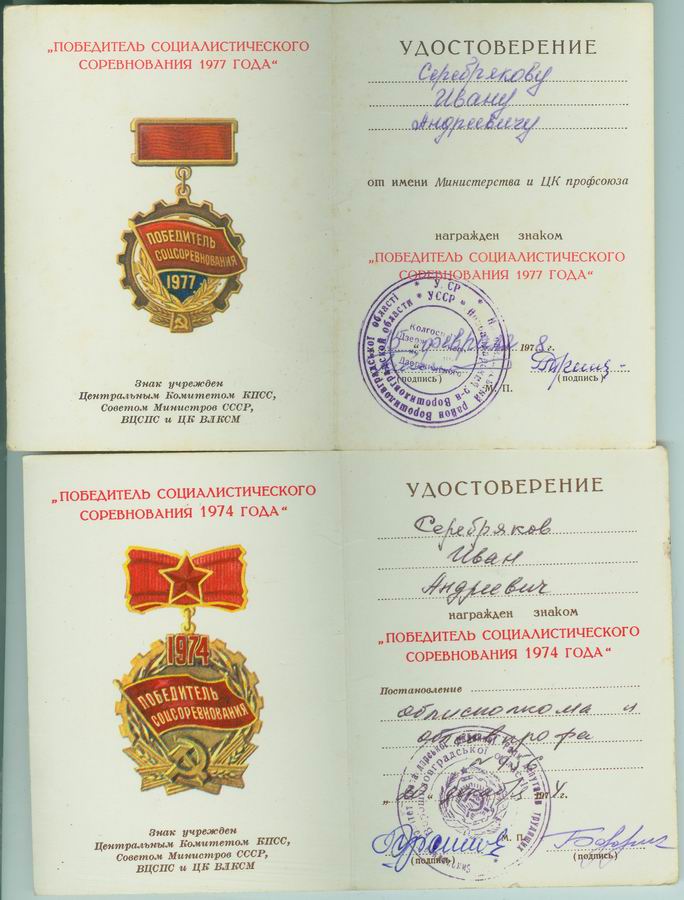 „ПОБЕДИТЕЛЬ СОЦИАЛИСТИЧЕСКОГО
СОРЕВНОВАНИЯ 1977 ГОДА“
ПОБЕДИТЕЛЬ
СОЦСОРЕВНОВАНИЯ
1977
Знак учрежден
Центральным Комитетом КПСС,
Советом Министров СССР,
ВЦСПС и ЦК ВЛКСМ
УДОСТОВЕРЕНИЕ
Серебрякову
Ивану
Андреевичу
от имени Министерства и ЦК профсоюза
награжден знаком
„ПОБЕДИТЕЛЬ СОЦИАЛИСТИЧЕСКОГО
СОРЕВНОВАНИЯ 1977 ГОДА“
февраля 1978 г.
(подпись) (подпись)
М. П.
район Ворошиловградської області
Ворошиловградской области * УССР
Колгосп
„ПОБЕДИТЕЛЬ СОЦИАЛИСТИЧЕСКОГО
СОРЕВНОВАНИЯ 1974 ГОДА“
1974
ПОБЕДИТЕЛЬ
СОЦСОРЕВНОВАНИЯ
Знак учрежден
Центральным Комитетом КПСС,
Советом Министров СССР,
ВЦСПС и ЦК ВЛКСМ
УДОСТОВЕРЕНИЕ
Серебряков
Иван
Андреевич
награжден знаком
„ПОБЕДИТЕЛЬ СОЦИАЛИСТИЧЕСКОГО
СОРЕВНОВАНИЯ 1974 ГОДА“
Постановление
облисполкома и
облсовпрофа
декабря 1974 г.
М. П.
(подпись) (подпись)